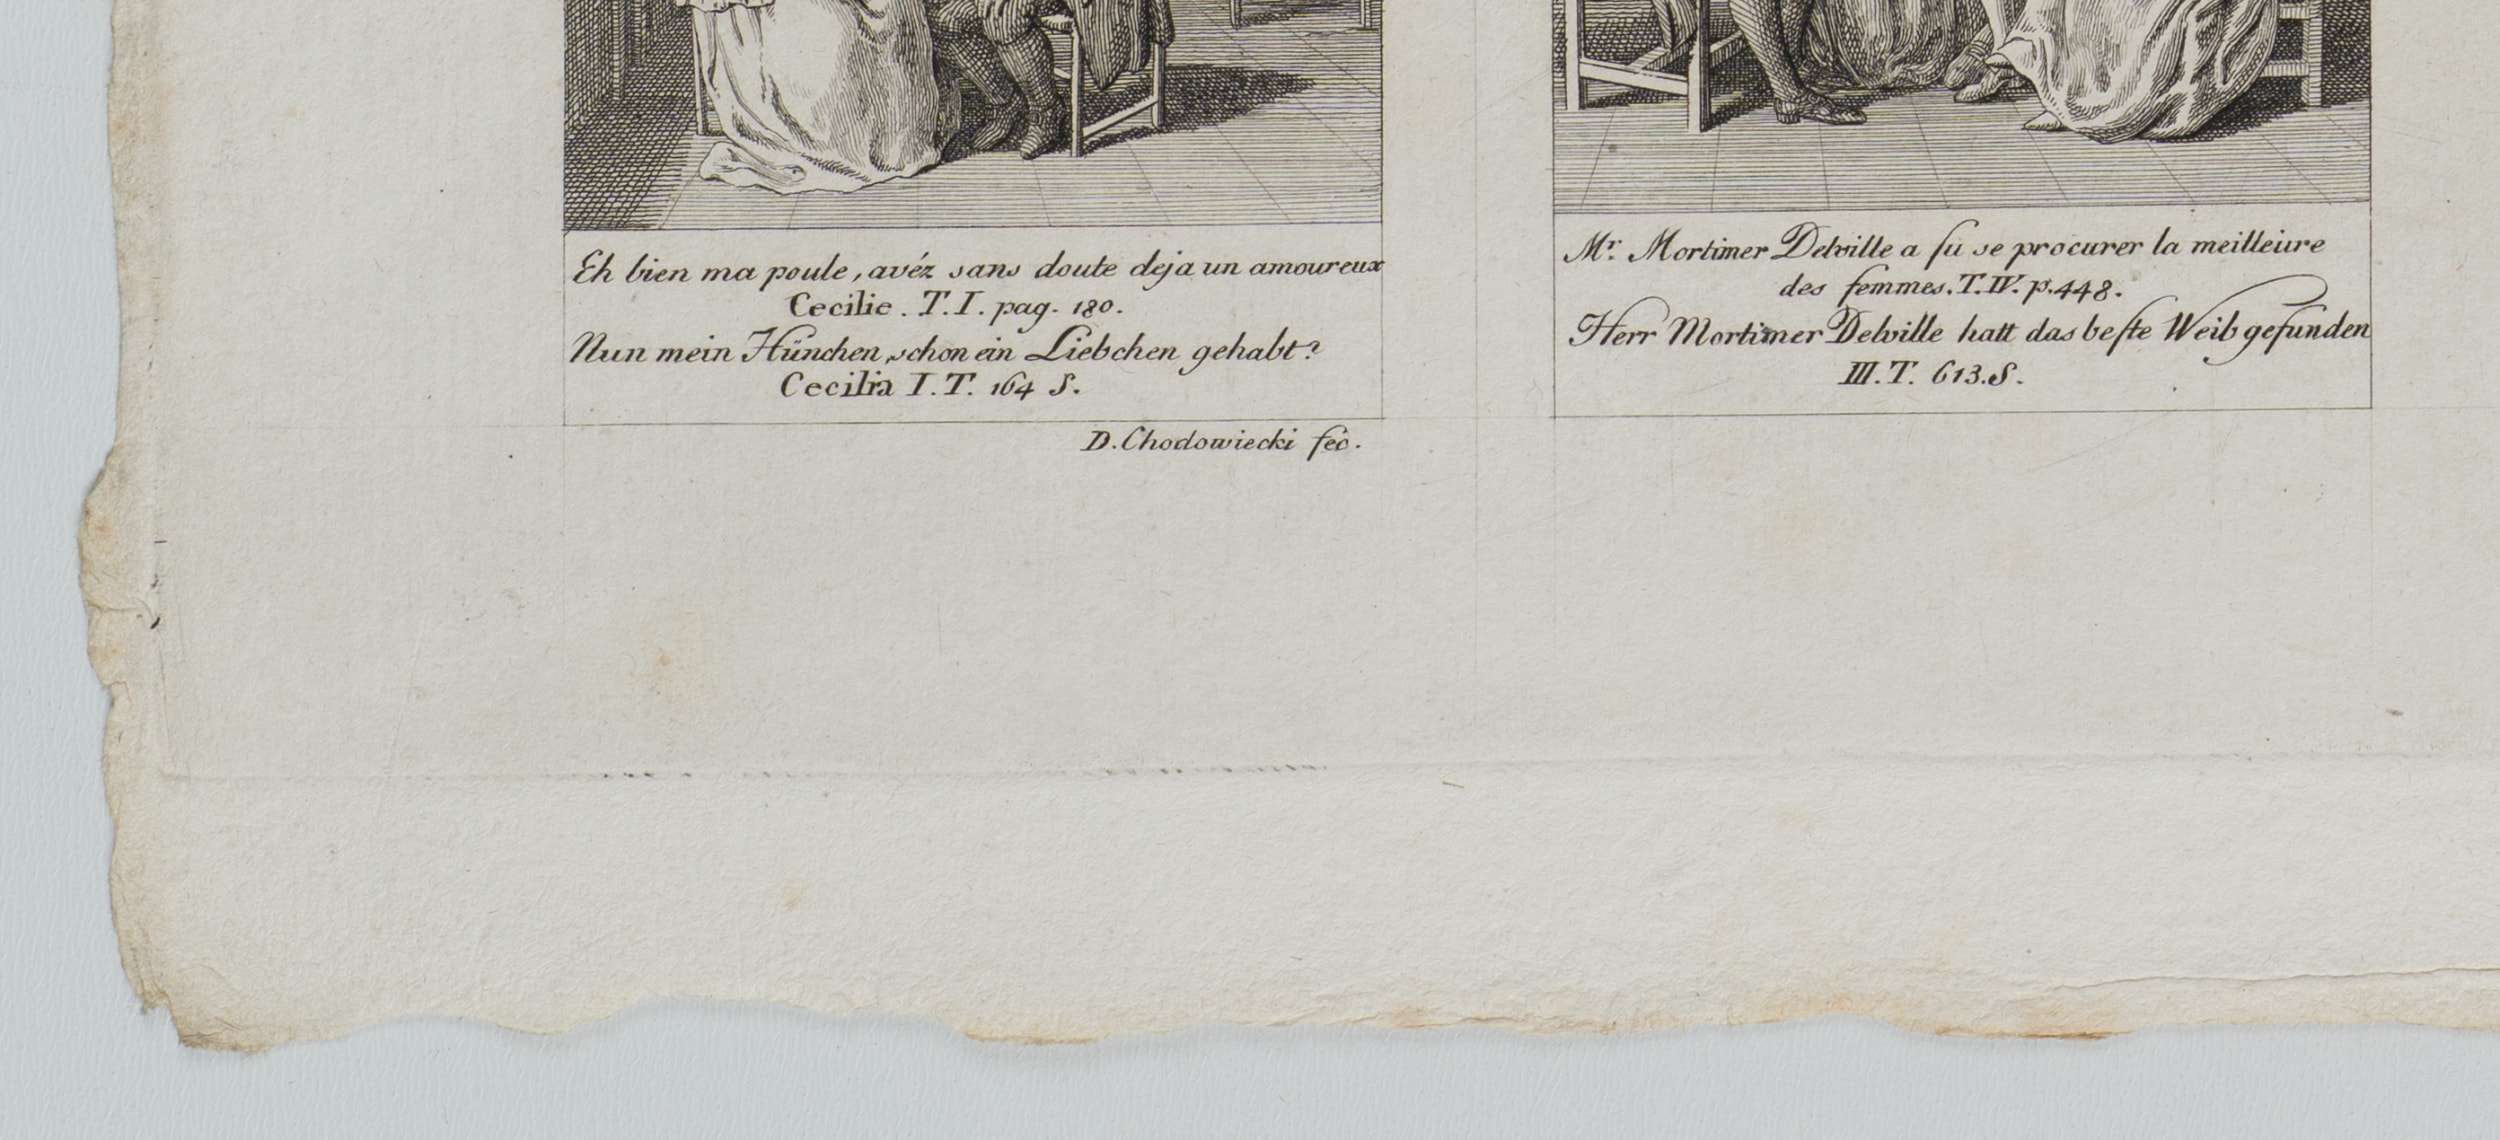 Eh bien ma poule, avéz sans doute deja un amoureux
Cecilie. T. I. pag. 180.
Nun mein Hünchen, schon ein Liebchen gehabt?
Cecilia I. T. 164 S.
D. Chodowiecki fec.
Mr. Mortimer Delville a ſu se procurer la meilleure
des femmes. T. IV. p. 448.
Herr Mortimer Delville hatt das beſte Weib gefunden
III. T. 613. S.